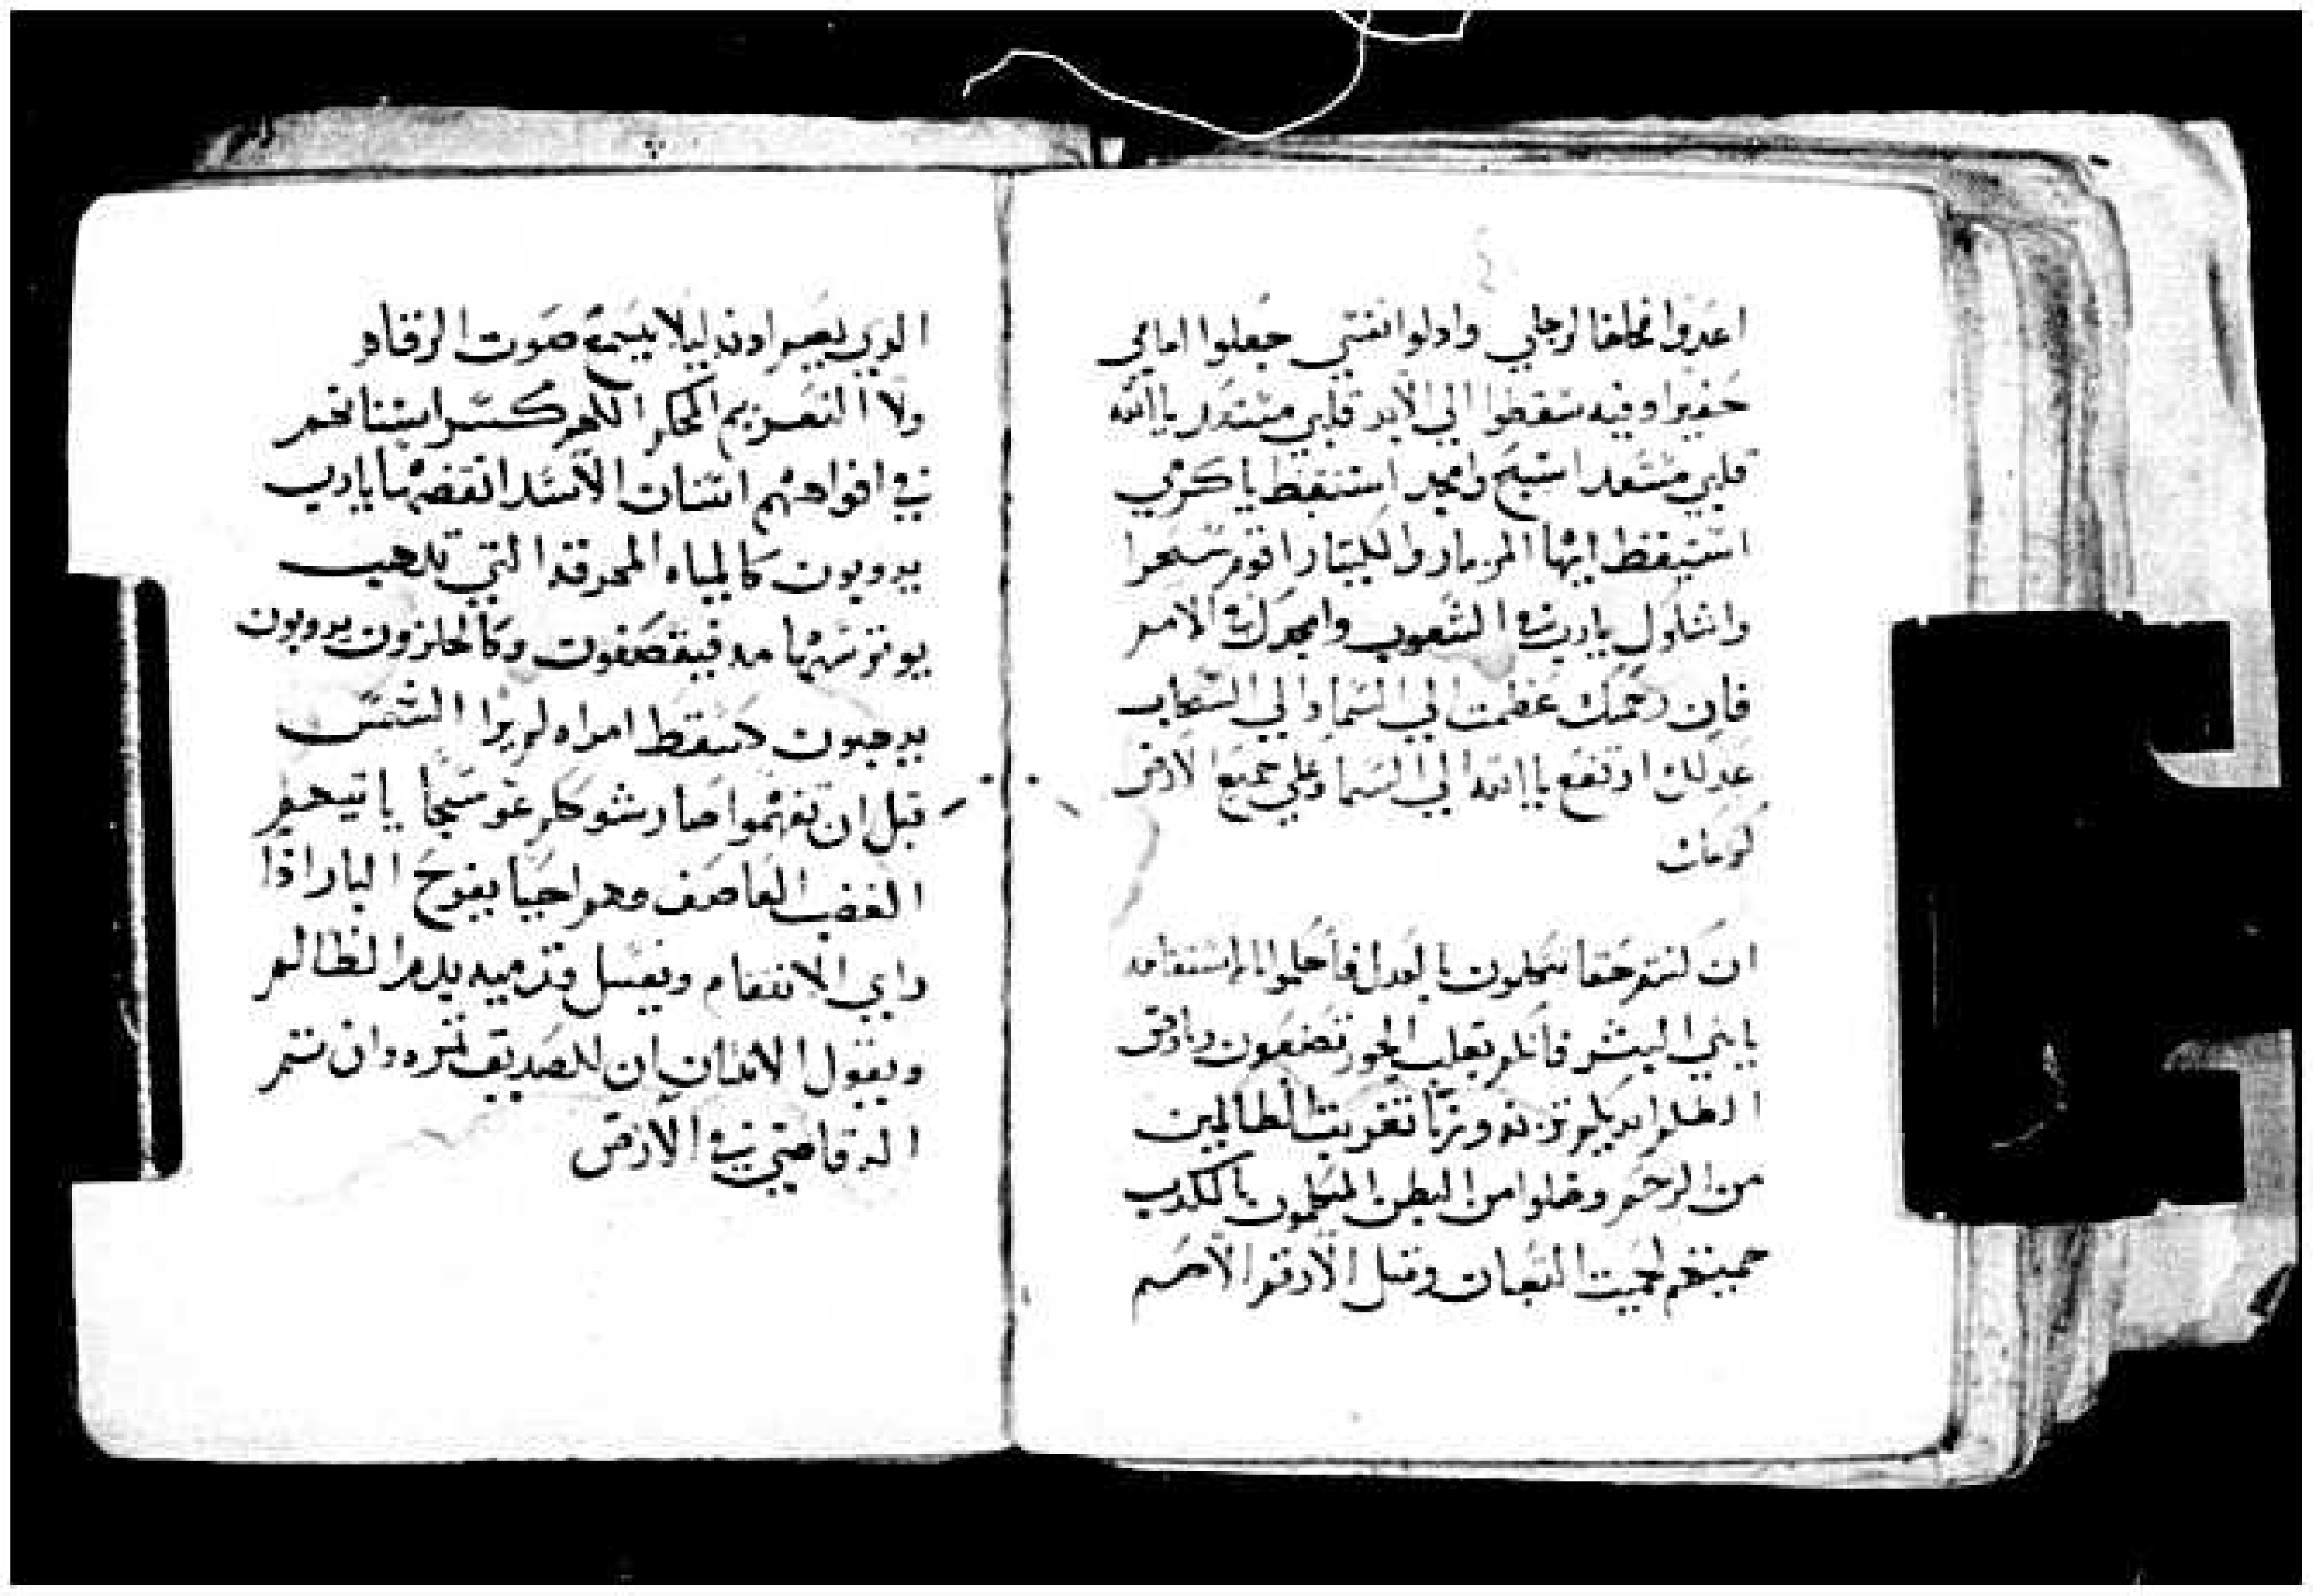 اعدوا فخاخا لرجلي وادلوا نفسي جعلوا امامي
حفيرا وفيه سقطوا الي الابد قلبي مستعد ياالله
قلبي مستعد اسبح وامجد استيقظ يا كرمي
استيقظ ايها المزمار والكيتارا اقوم سحرا
واشكرك يارب في الشعوب وامجدك في الامم
فان رحمتك عظمت الي السما والي السحاب
عدلك ارتفع ياالله الي السما وعلي جميع الارض
كرمك
ان كنتم حقا تتكلمون بالعدل فاحكموا بالاستقامه
يابني البشر فانكم بقلب الجور تصنعون وبافق
الظلم ايديكم تزنه وتزنا تغرب الظالمين
من الرحم وضلوا من البطن المتكلمون بالكدب
حميتهم لحميت الثعبان ومثل الارقم الاصم
الدي يصم ادنه ليلا يسمع صوت الرقاه
ولا التعزيم المحكم اللهم كسر اسنانهم
في افواههم اسنان الاسد انقضها يارب
يدوبون كالمياه المحرقه التي تدهب
يوتر سهامه فيقصفون وكالحلزون يدوبون
يدهبون لاسقط امراه لم يرا الشمس
قبل ان تفهموا صار شوككم عوسجا يا تيهم
الغضب العاصف وهو احيا يفرح البار اذا
راي الانتقام ويغسل قدميه بدم الظالم
ويقول الانسان ان للصديق ثمره وان ثم
اله قاضي في الارض